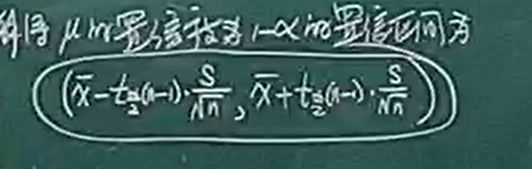 解得 μ的置信度为 1-α的置信区间为
(x̄-t_{α/2}(n-1)·S/√n, x̄+t_{α/2}(n-1)·S/√n)